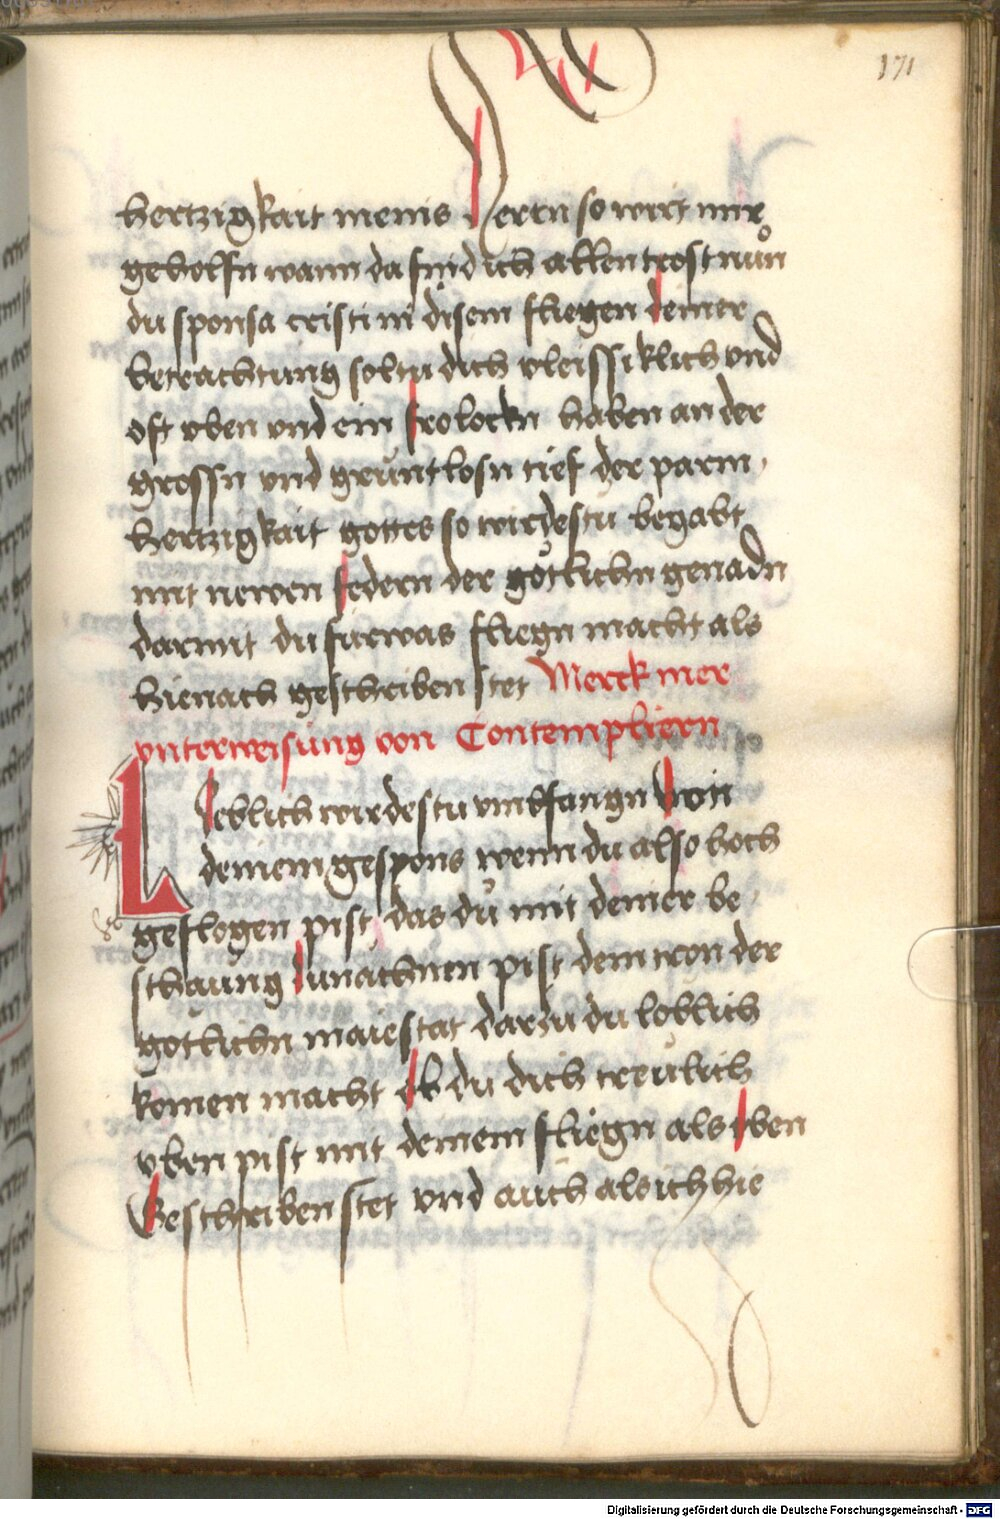 171
hertzigkait meins herrn so wirt mir
geholfn wann da find ich allen trost nün
du sponsa cristi in disem fliegen deiner
betrachtung soltu dich vleissiklich vnd
oft vben vnd ein frolockn haben an der
grossn vnd grüntlosn tief der parm
hertzigkait gottes so wirdestu begabt
mit newen federn der götlichn genadn
darmit du fürwas fliegn macht als
hienach geschriben stet Merck mer
vnterweisung von Contempliern
Lieblich wirdestu vmbfangn von
deinem gespons wenn du also hoch
geflogen pist, das dü mit deiner be
schaung zunachnen pist dem tron der
götlichn maiestat darzu du löblich
komen macht ob du dich treülich
vben pist mit deinem fliegn als oben
Geschriben stet vnd auch als ich hie
Digitalisierung gefördert durch die Deutsche Forschungsgemeinschaft - DFG